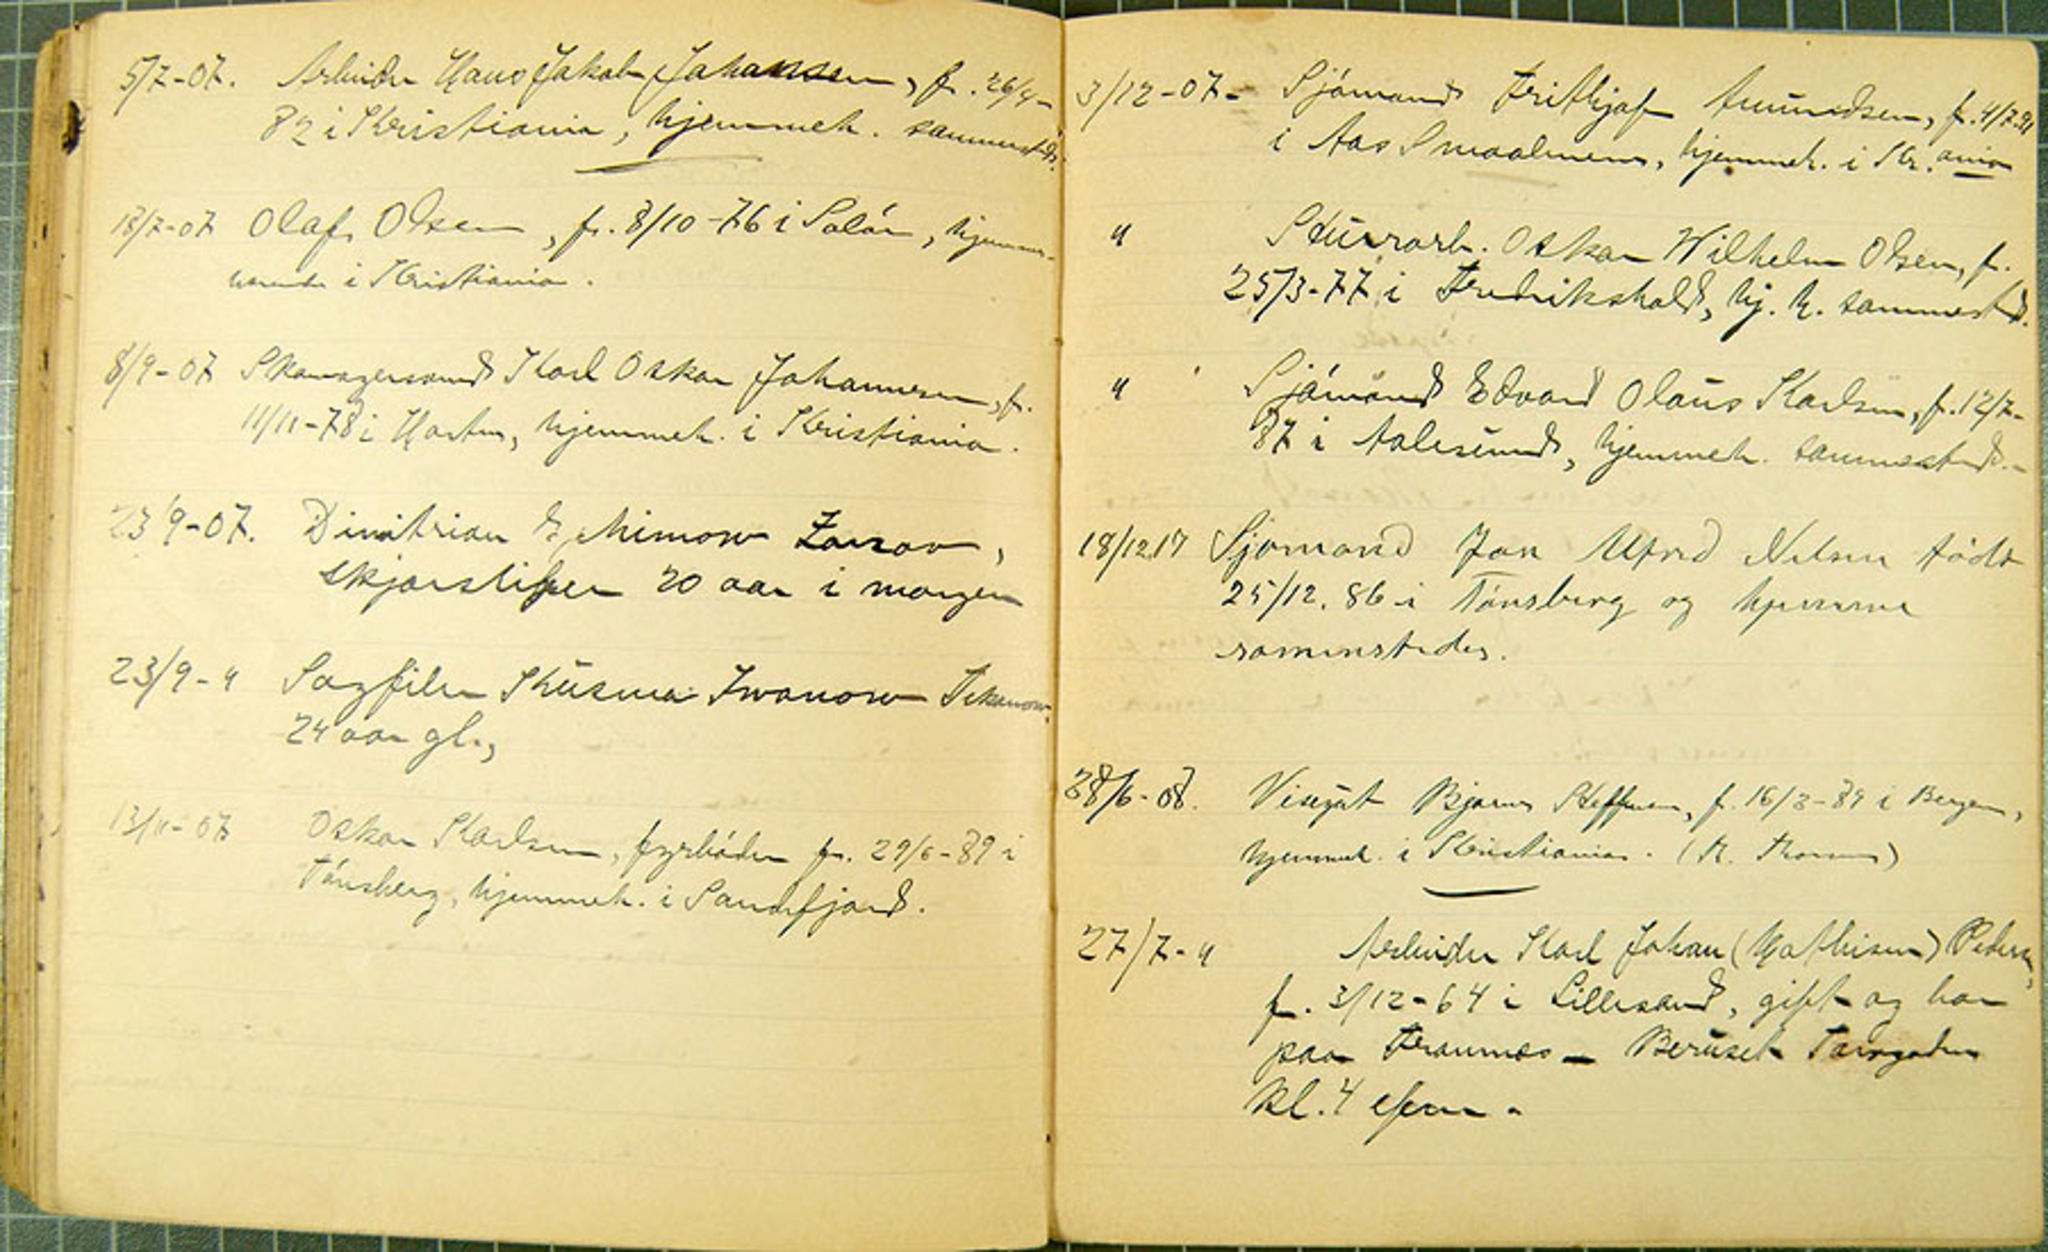 5/7-07. Arbeider Hans Jakob Johansen, f. 26/4-
82 i Kristiania, hjemmeh. sammesteds.
18/7-07 Olaf Olsen, f. 8/10-76 i Solør, hjemme-
hørende i Kristiania.
8/9-07 Skomagersvend Karl Oskar Johannesen, f.
11/11-78 i Horten, hjemmeh. i Kristiania.
23/9-07. Dimitrian
20 aar i morgen
23/9-" Iwanow
24 aar gl.,
13/11-07 Oskar Karlsen, fyrbøder f. 29/6-89 i
Tønsberg, hjemmeh. i Sandefjord.
3/12-07- Sjømand Frithjof Amundsen, f. 4/7-91
i Aas Smaalenene, hjemmeh. i Kr.ania
" Oskar Wilhelm Olsen, f.
25/3-77 i Fredrikshald, hj. h. sammesteds.
" Sjømand Edvard Olaus Karlsen, f. 12/7-
87 i Aalesund, hjemmeh. sammesteds.-
18/12.17 Sjømand Jon Alfred Nilsen født
25/12.86 i Tønsberg og hjemme
sammesteds.
28/6-08. Visegut Bjarne Steffensen, f. 16/3-89 i Bergen,
hjemmeh. i Kristiania.
27/7-" Arbeider Karl Johan (Mathisen) Pedersen,
f. 3/12-64 i Lillesand, gift og bor
paa Framnæs - Beruset Torvgaden
kl. 4 efm.